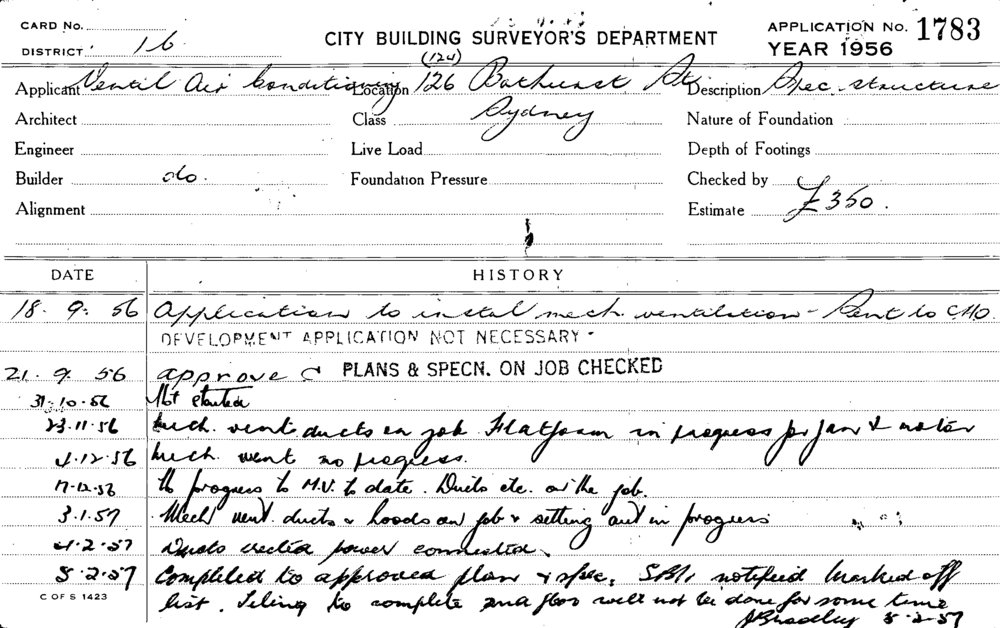 CARD No.
DISTRICT 16
CITY BUILDING SURVEYOR'S DEPARTMENT
APPLICATION No. 1783
YEAR 1956
(124)
Applicant Ventil Air Conditioning Location 126 Bathurst St Description Spec. structure
Architect Class Sydney Nature of Foundation
Engineer Live Load Depth of Footings
Builder do. Foundation Pressure Checked by
Alignment Estimate £350.
DATE HISTORY
18. 9. 56 Application to instal mech ventilation - Sent to C.H.O.
DEVELOPMENT APPLICATION NOT NECESSARY
21. 9. 56 approve PLANS & SPECN. ON JOB CHECKED
31.10.56 Not started
23.11.56 Mech. vent ducts on job Platform in progress for fan & motor
4.12.56 Mech. vent no progress.
17.12.56 No progress to M.V. to date. Ducts etc. on the job.
3.1.57 Mech vent. ducts & hoods on job & setting out in progress
4.2.57 Ducts erected power connected.
5.2.57 Completed to approved plan & spec, notified marked off
list. to complete 2nd floor will not be done for some time
JBradley 5-2-57
C OF S 1423